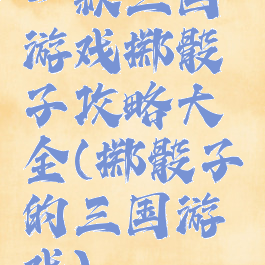 一款三国
游戏掷骰
子攻略大
全(掷骰子
的三国游
戏)